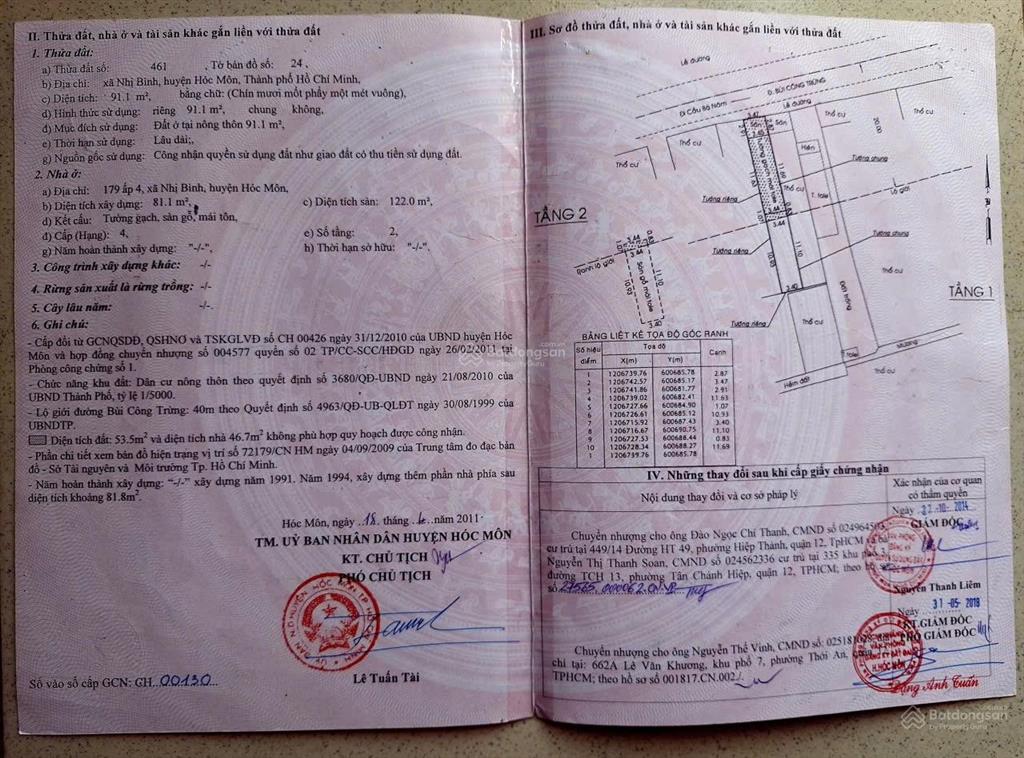 II. Thửa đất, nhà ở và tài sản khác gắn liền với thửa đất
1. Thửa đất:
a) Thửa đất số: 461 , Tờ bản đồ số: 24,
b) Địa chỉ: xã Nhị Bình, huyện Hóc Môn, Thành phố Hồ Chí Minh,
c) Diện tích: 91.1 m², bằng chữ: (Chín mươi mốt phẩy một mét vuông),
d) Hình thức sử dụng: riêng 91.1 m², chung không,
đ) Mục đích sử dụng: Đất ở tại nông thôn 91.1 m²,
e) Thời hạn sử dụng: Lâu dài;,
g) Nguồn gốc sử dụng: Công nhận quyền sử dụng đất như giao đất có thu tiền sử dụng đất.
2. Nhà ở:
a) Địa chỉ: 179 ấp 4, xã Nhị Bình, huyện Hóc Môn,
b) Diện tích xây dựng: 81.1 m², c) Diện tích sàn: 122.0 m²,
d) Kết cấu: Tường gạch, sàn gỗ, mái tôn,
đ) Cấp (Hạng): 4, e) Số tầng: 2,
g) Năm hoàn thành xây dựng: "-/-", h) Thời hạn sở hữu: "-/-",
3. Công trình xây dựng khác: -/-
4. Rừng sản xuất là rừng trồng: -/-
5. Cây lâu năm: -/-
6. Ghi chú:
- Cấp đổi từ GCNQSDĐ, QSHNO và TSKGLVĐ số CH 00426 ngày 31/12/2010 của UBND huyện Hóc
Môn và hợp đồng chuyển nhượng số 004577 quyển số 02 TP/CC-SCC/HĐGD ngày 26/02/2011 tại
Phòng công chứng số 1.
- Chức năng khu đất: Dân cư nông thôn theo quyết định số 3680/QĐ-UBND ngày 21/08/2010 của
UBND Thành phố, tỷ lệ 1/5000.
- Lộ giới đường Bùi Công Trừng: 40m theo Quyết định số 4963/QĐ-UB-QLĐT ngày 30/08/1999 của
UBNDTP.
Diện tích đất: 53.5m² và diện tích nhà 46.7m² không phù hợp quy hoạch được công nhận.
- Phần chi tiết xem bản đồ hiện trạng vị trí số 72179/CN HM ngày 04/09/2009 của Trung tâm đo đạc bản
đồ - Sở Tài nguyên và Môi trường Tp. Hồ Chí Minh.
- Năm hoàn thành xây dựng: "-/-" xây dựng năm 1991. Năm 1994, xây dựng thêm phần nhà phía sau
diện tích khoảng 81.8m².
Hóc Môn, ngày 18 tháng 4 năm 2011
TM. UỶ BAN NHÂN DÂN HUYỆN HÓC MÔN
KT. CHỦ TỊCH
PHÓ CHỦ TỊCH
Lê Tuấn Tài
Số vào sổ cấp GCN: GH. 00130
III. Sơ đồ thửa đất, nhà ở và tài sản khác gắn liền với thửa đất
Lề đường
Đ. BÙI CÔNG TRỪNG
Đi Cầu Bà Năm
Lề đường
Sân
Sân
Thổ cư
Thổ cư
Thổ cư
20.00
Hiên
Tường chung
11.63
11.69
Thổ cư
T. tole
Lộ giới
Tường riêng
TẦNG 2
3.44
0.83
1.07
3.44
Ranh lộ giới
Sàn gỗ mái tole
10.93
11.10
3.40
Tường riêng
10.93
11.10
3.40
Tường chung
Thổ cư
TẦNG 1
Tường riêng
Thổ cư
Đất trống
T. tole
Mương
Hẻm đất
Thổ cư
BẢNG LIỆT KÊ TỌA ĐỘ GÓC RANH
Số hiệu điểm Tọa độ Cạnh
X(m) Y(m)
1 1206739.76 600685.78 2.87
2 1206742.57 600685.17 3.47
3 1206741.86 600681.77 2.91
4 1206739.02 600682.41 11.63
5 1206727.66 600684.90 1.07
6 1206726.61 600685.12 10.93
7 1206715.92 600687.43 3.40
8 1206716.67 600690.75 11.10
9 1206727.53 600688.44 0.83
10 1206728.34 600688.27 11.69
1 1206739.76 600685.78
IV. Những thay đổi sau khi cấp giấy chứng nhận
Nội dung thay đổi và cơ sở pháp lý
Xác nhận của cơ quan
có thẩm quyền
Ngày 22-10-2014
GIÁM ĐỐC
Chuyển nhượng cho ông Đào Ngọc Chí Thanh, CMND số
cư trú tại 449/14 Đường HT 49, phường Hiệp Thành, quận 12, TpHCM và bà
Nguyễn Thị Thanh Soan, CMND số 024562336 cư trú tại 335 khu phố
đường TCH 13, phường Tân Chánh Hiệp, quận 12, TPHCM; theo hồ sơ
số
Nguyễn Thanh Liêm
Ngày 31-05-2018
KT.GIÁM ĐỐC
PHÓ GIÁM ĐỐC
Chuyển nhượng cho ông Nguyễn Thế Vinh, CMND số
chỉ tại: 662A Lê Văn Khương, khu phố 7, phường Thới An,
TPHCM; theo hồ sơ 001817.CN.002./
H.HÓC MÔN
Đặng Anh Tuấn
Batdongsan
by PropertyGuru